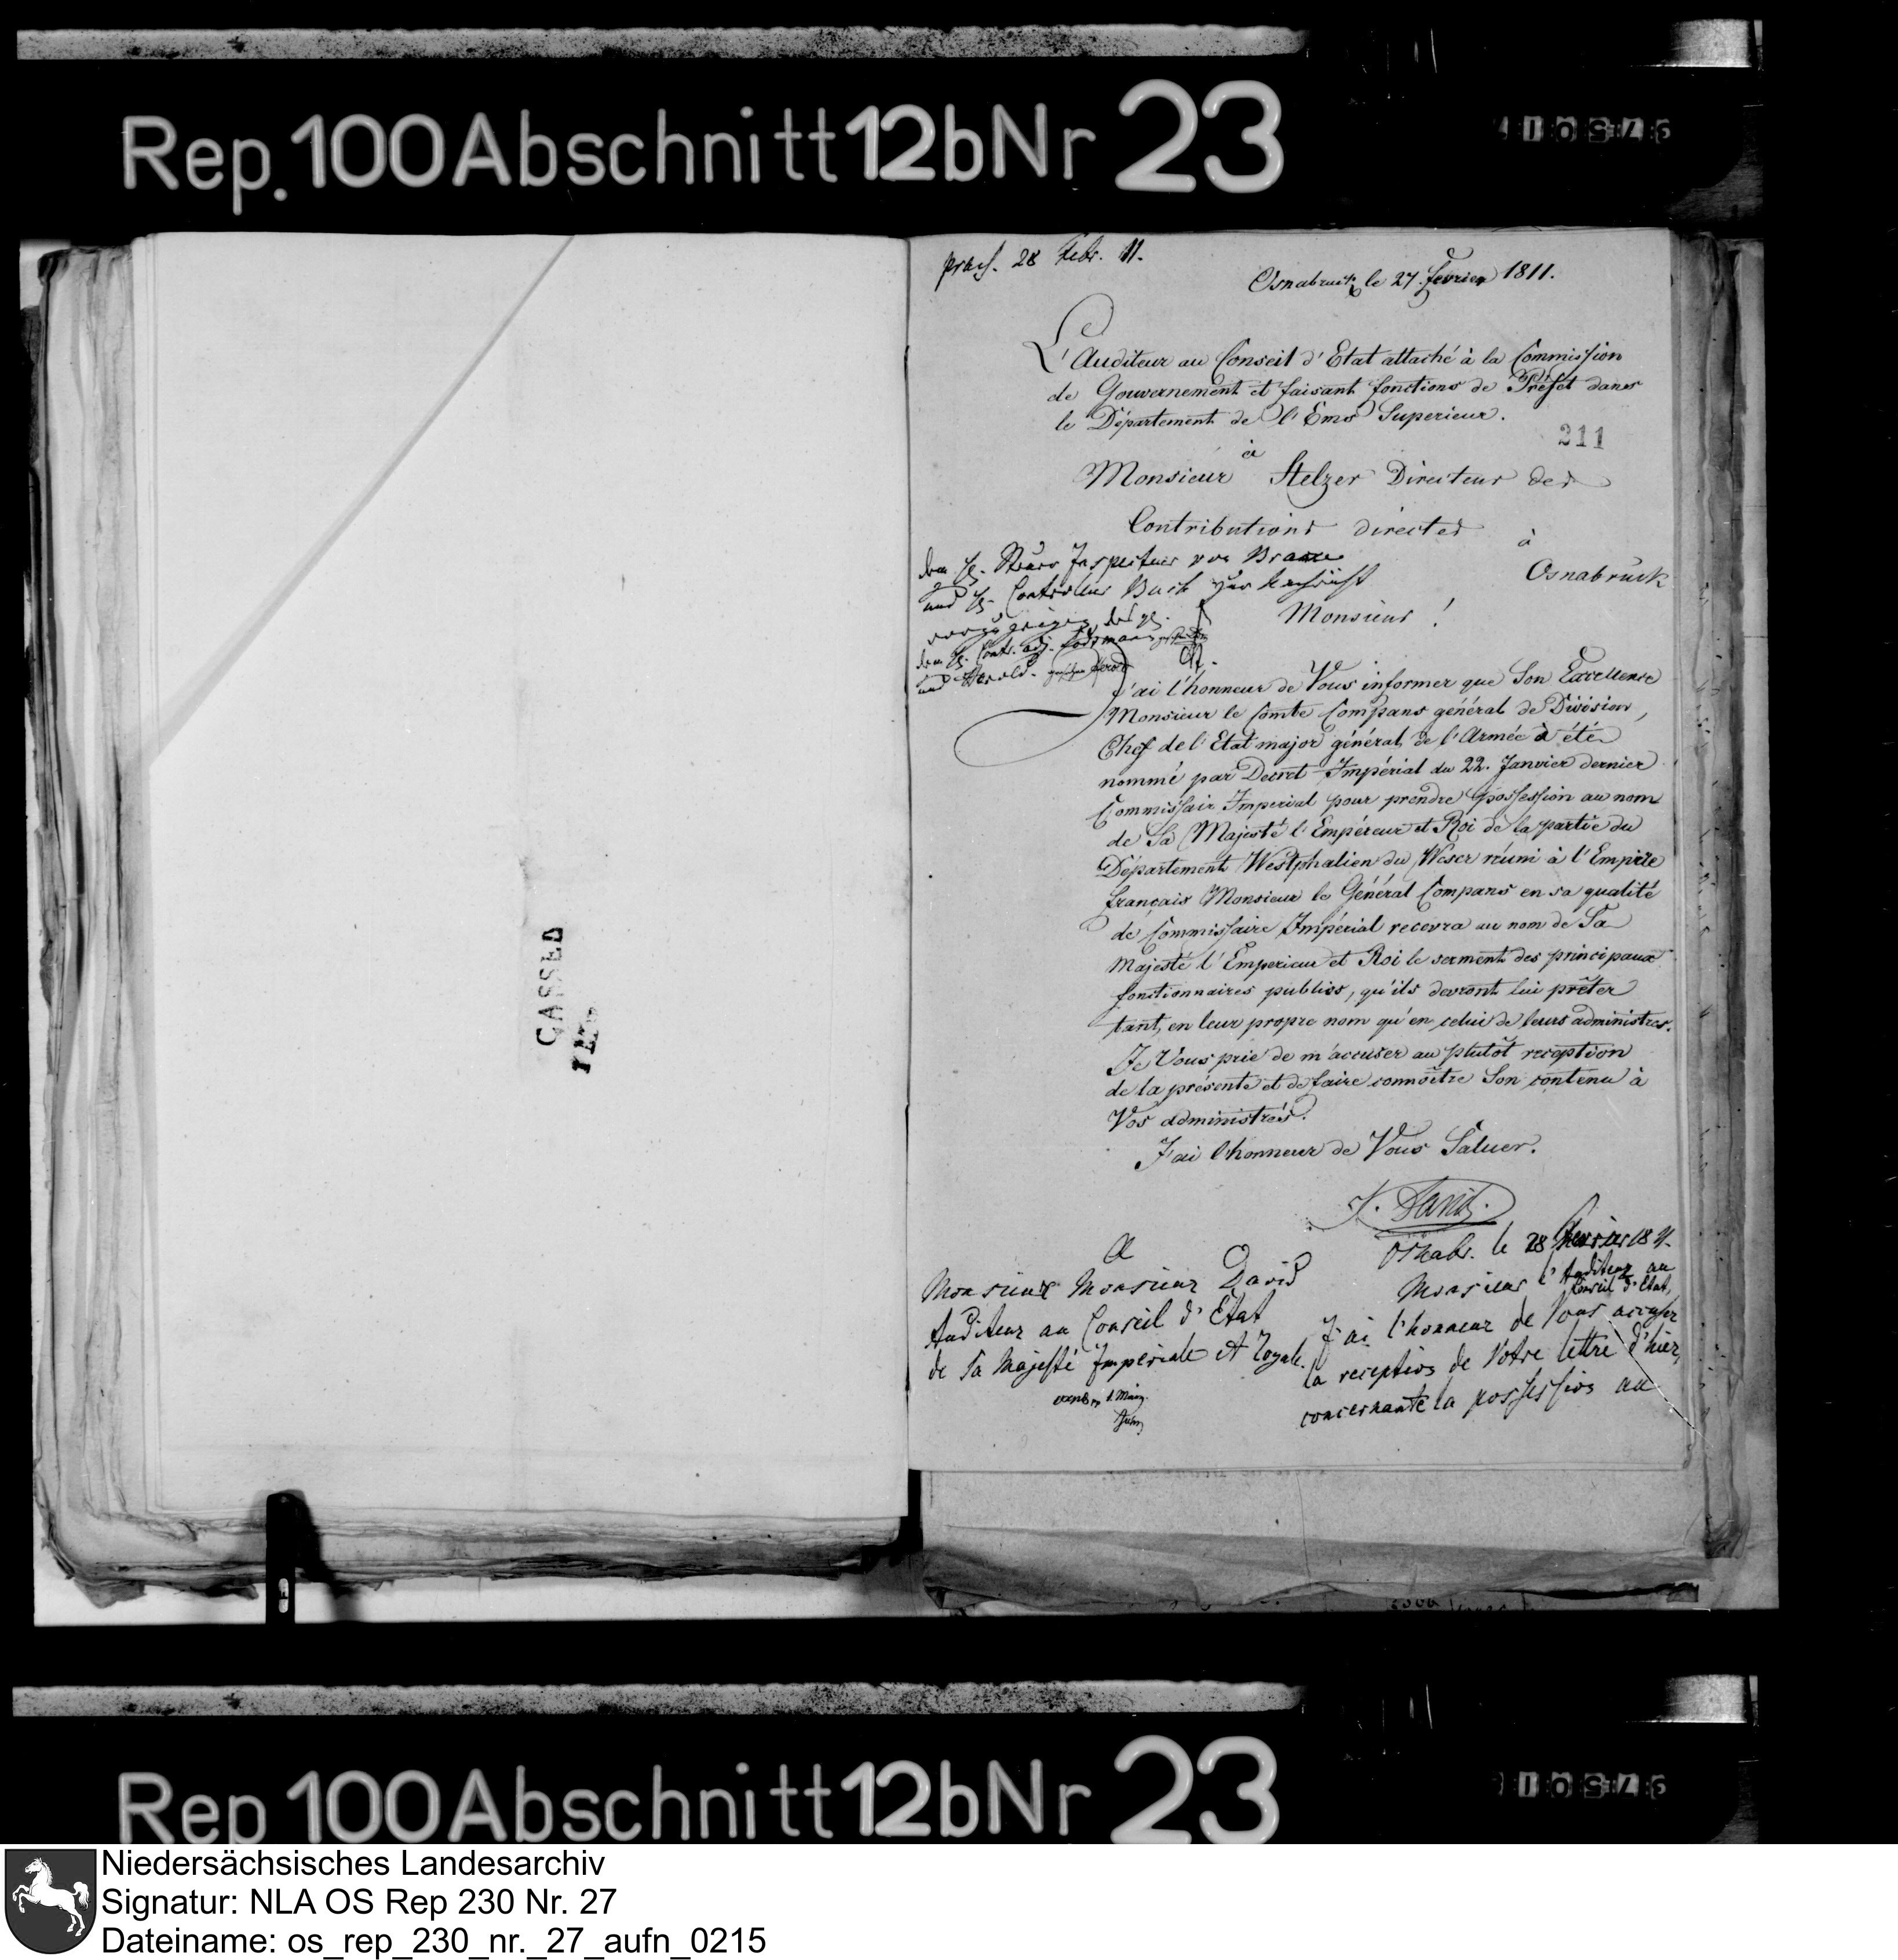 Rep. 100 Abschnitt 12b Nr 23
præs. 28 Febr. 11.
Osnabruck le 27. fevrier 1811.
L'Auditeur au Conseil d'Etat attaché à la Commission
de Gouvernement et faisant fonctions de Préfet dans
le Département de l'Ems Superieur.
211
à
Monsieur Stelzer Directeur des
Contributions directes
à
Osnabrück
Monsieur!
J'ai l'honneur de Vous informer que Son Excellence
Monsieur le Comte Compans général de Division,
Chef de l'Etat major général de l'Armée à été
nommé par Decret Impérial du 22. Janvier dernier
Commissair Imperial pour prendre possession au nom
de Sa Majesté l'Empéreur et Roi de la partie du
Département Westphalien du Weser réuni à l'Empire
français Monsieur le Général Compans en sa qualité
de Commissaire Impérial recevra au nom de Sa
Majesté l'Empereur et Roi le serment des principaux
fonctionnaires publics, qu'ils devront lui prêter
tant en leur propre nom qu'en celui de leurs administres.
Je Vous prie de m'accuser au plutôt reception
de la présente et de faire connoître Son contenu à
Vos administrés.
J'ai l'honneur de Vous Saluer.
David.
dem H. Steuer Inspecteur von
und H. Controleur Buch zur
dem H. Contr. adj.
und Herold.
à
Monsieur Monsieur David
Auditeur au Conseil d'Etat
de Sa Majesté Imperiale et Royale.
Osnabr. le 28 Fevrier 1811.
Monsieur l'Auditeur au
Conseil d'Etat,
J'ai l'honneur de Vous accuser
la reception de Votre lettre d'hier,
concernante la possession au
CASSEL
Rep 100 Abschnitt 12b Nr 23
Niedersächsisches Landesarchiv
Signatur: NLA OS Rep 230 Nr. 27
Dateiname: os_rep_230_nr._27_aufn_0215